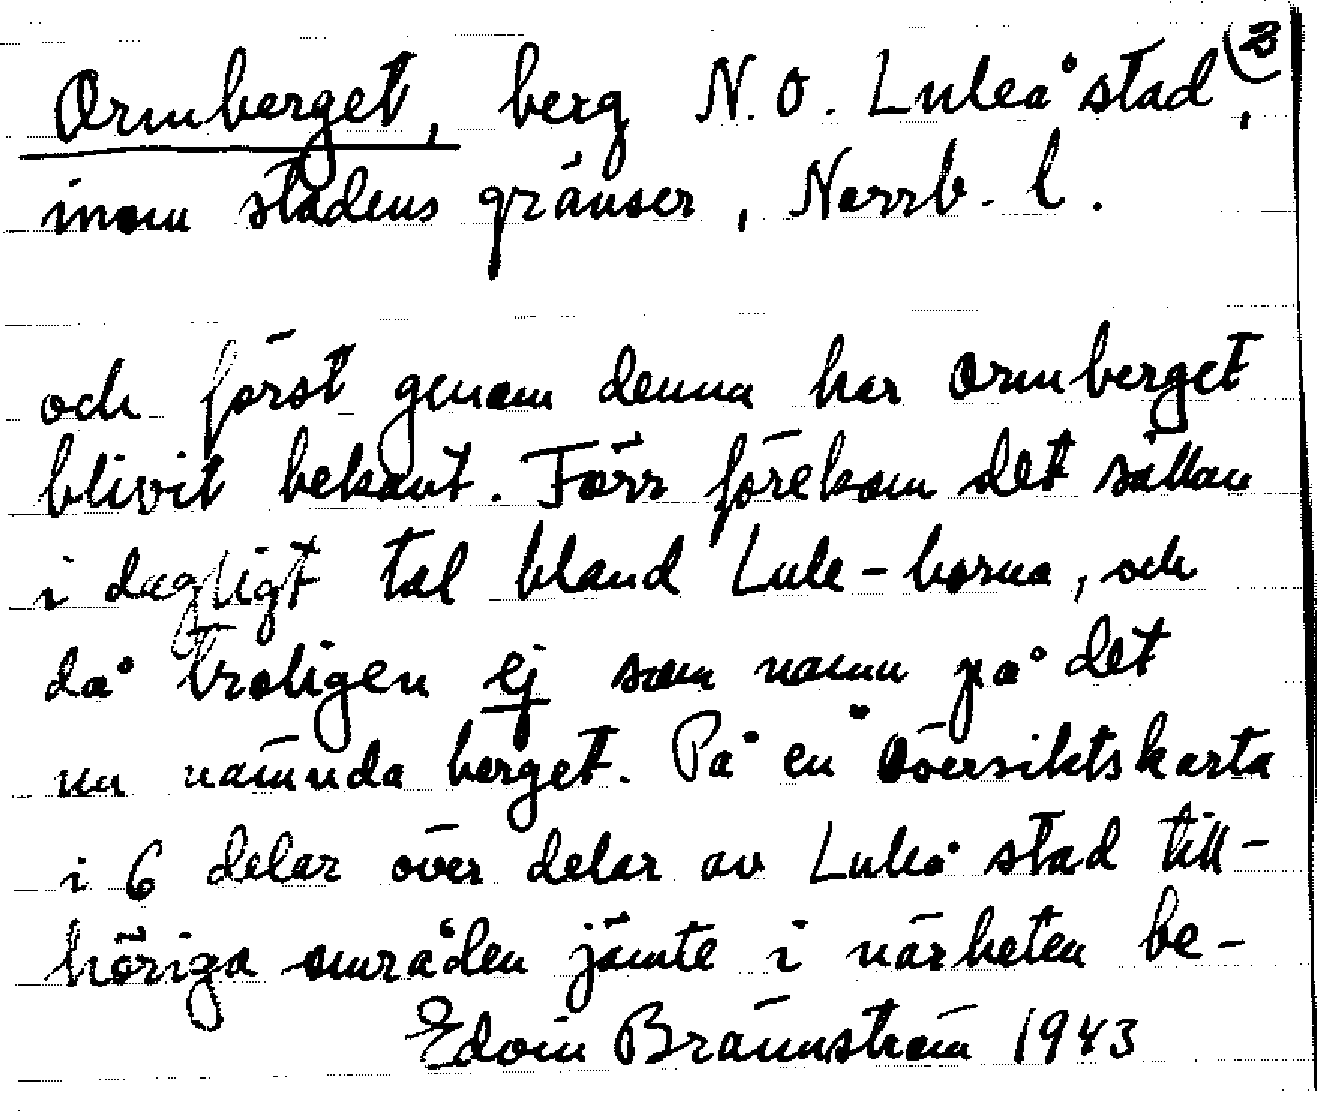 Ormberget, berg N.O. Luleå stad, (2
inom stadens gränser, Norrb. l.
och först genom denna har Ormberget
blivit bekant. Förr förekom det sällan
i dagligt tal bland Lule-borna, och
då troligen ej som namn på det
nu nämnda berget. På en översiktskarta
i 6 delar över delar av Luleå stad till-
höriga områden jämte i närheten be-
Edvin Brännström 1943